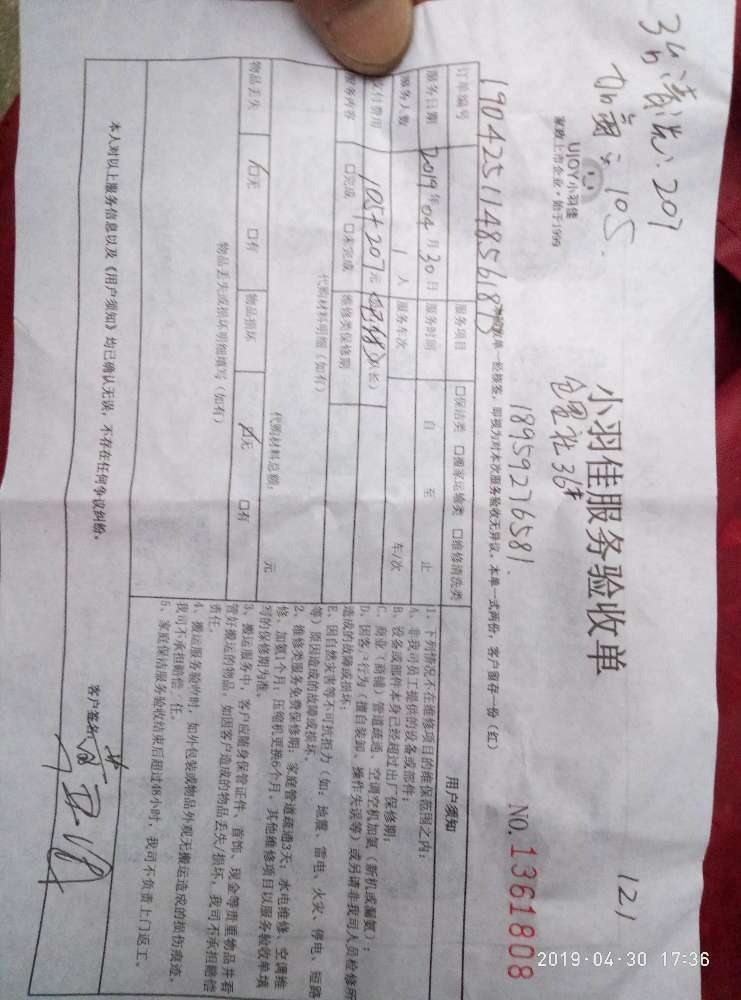 3台清洗:207
加氟:105.
UJOY小羽佳
家政上市企业·始于1999
小羽佳服务验收单
121
仓里社36#
18959276581.
NO.1361808
190425114856187
验收单一经核签，即视为对本次服务验收无异议。本单一式两份，客户留存一份（红）
订单编号
服务项目 口保洁类 口搬家运输类 口维修清洗类
服务日期 2019年04月30日 服务时间 自 至 止
服务人数 1人 服务车次 车/次
应付费用 105+207元 （队长）
服务内容 口完成 口未完成 维修类保修期
代购材料明细（如有）
代购材料总额： 元
物品丢失 口无 口有 物品损坏 口无 口有
物品丢失或损坏明细填写（如有）
用户须知
1、下列情况不在维修项目的维保范围之内：
A、非我司员工提供的设备或部件；
B、设备或部件本身已经超过出厂保修期；
C、商业（商铺）管道疏通、空调空机加氨（新机或漏氨）；
D、因客户行为（擅自装卸、操作失误等）或另请非我司人员检修所
造成的故障或损坏；
E、因自然灾害等不可抗拒力（如：地震、雷电、火灾、停电、短路
等）原因造成的故障或损坏。
2、维修类服务免费保修期：家庭管道疏通3天；水电维修、空调维
修、加氨1个月；压缩机更换6个月，其他维修项目以服务验收单填
写的保修期为准。
3、搬运服务中，客户应随身保管证件、首饰、现金等贵重物品并看
管好搬运的物品，如因客户造成的物品丢失/损坏，我司不承担赔偿
责任。
4、搬运服务验收时，如外包装或物品外观无搬运造成的损伤痕迹，
我司不承担赔偿 任。
5、家庭保洁服务验收结束后超过48小时，我司不负责上门返工。
本人对以上服务信息以及《用户须知》均已确认无误，不存在任何争议纠纷。
客户签名：
2019-04-30 17:36